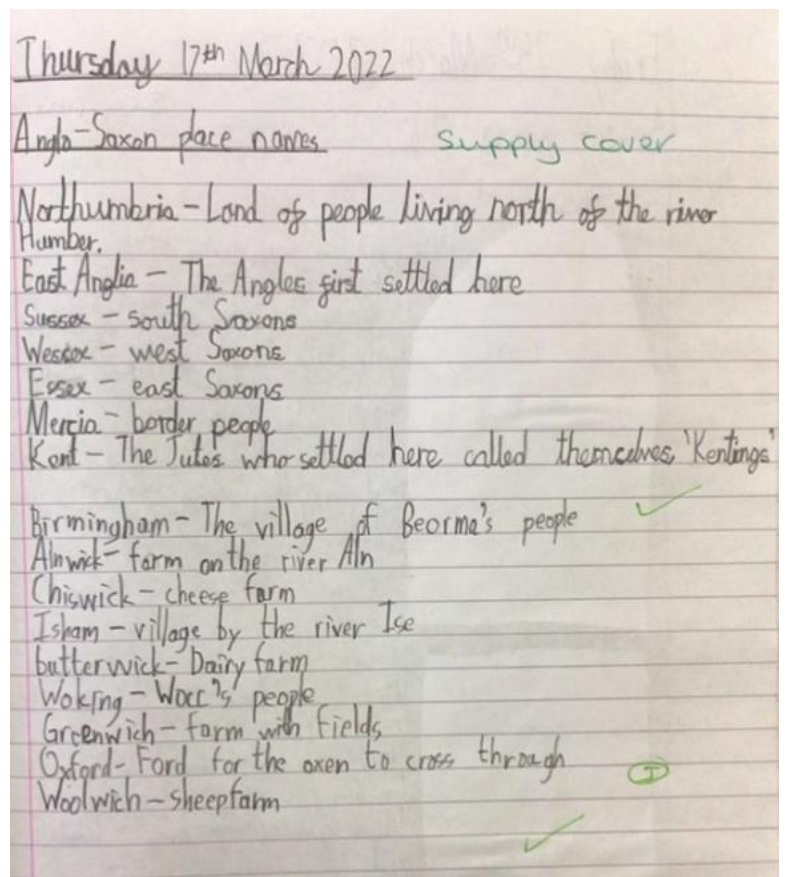 Thursday 17th March 2022
Anglo-Saxon place names supply cover
Northumbria - Land of people living north of the river
Humber.
East Anglia - The Angles first settled here
Sussex - south Saxons
Wessex - west Saxons
Essex - east Saxons
Mercia - border people
Kent - The Jutes who settled here called themselves 'Kentings'
Birmingham - The village of Beorma's people
Alnwick - farm on the river Aln
Chiswick - cheese farm
Isham - village by the river Ise
butterwick - Dairy farm
Woking - Wocc's people
Greenwich - farm with fields
Oxford - Ford for the oxen to cross through
I
Woolwich - sheepfarm